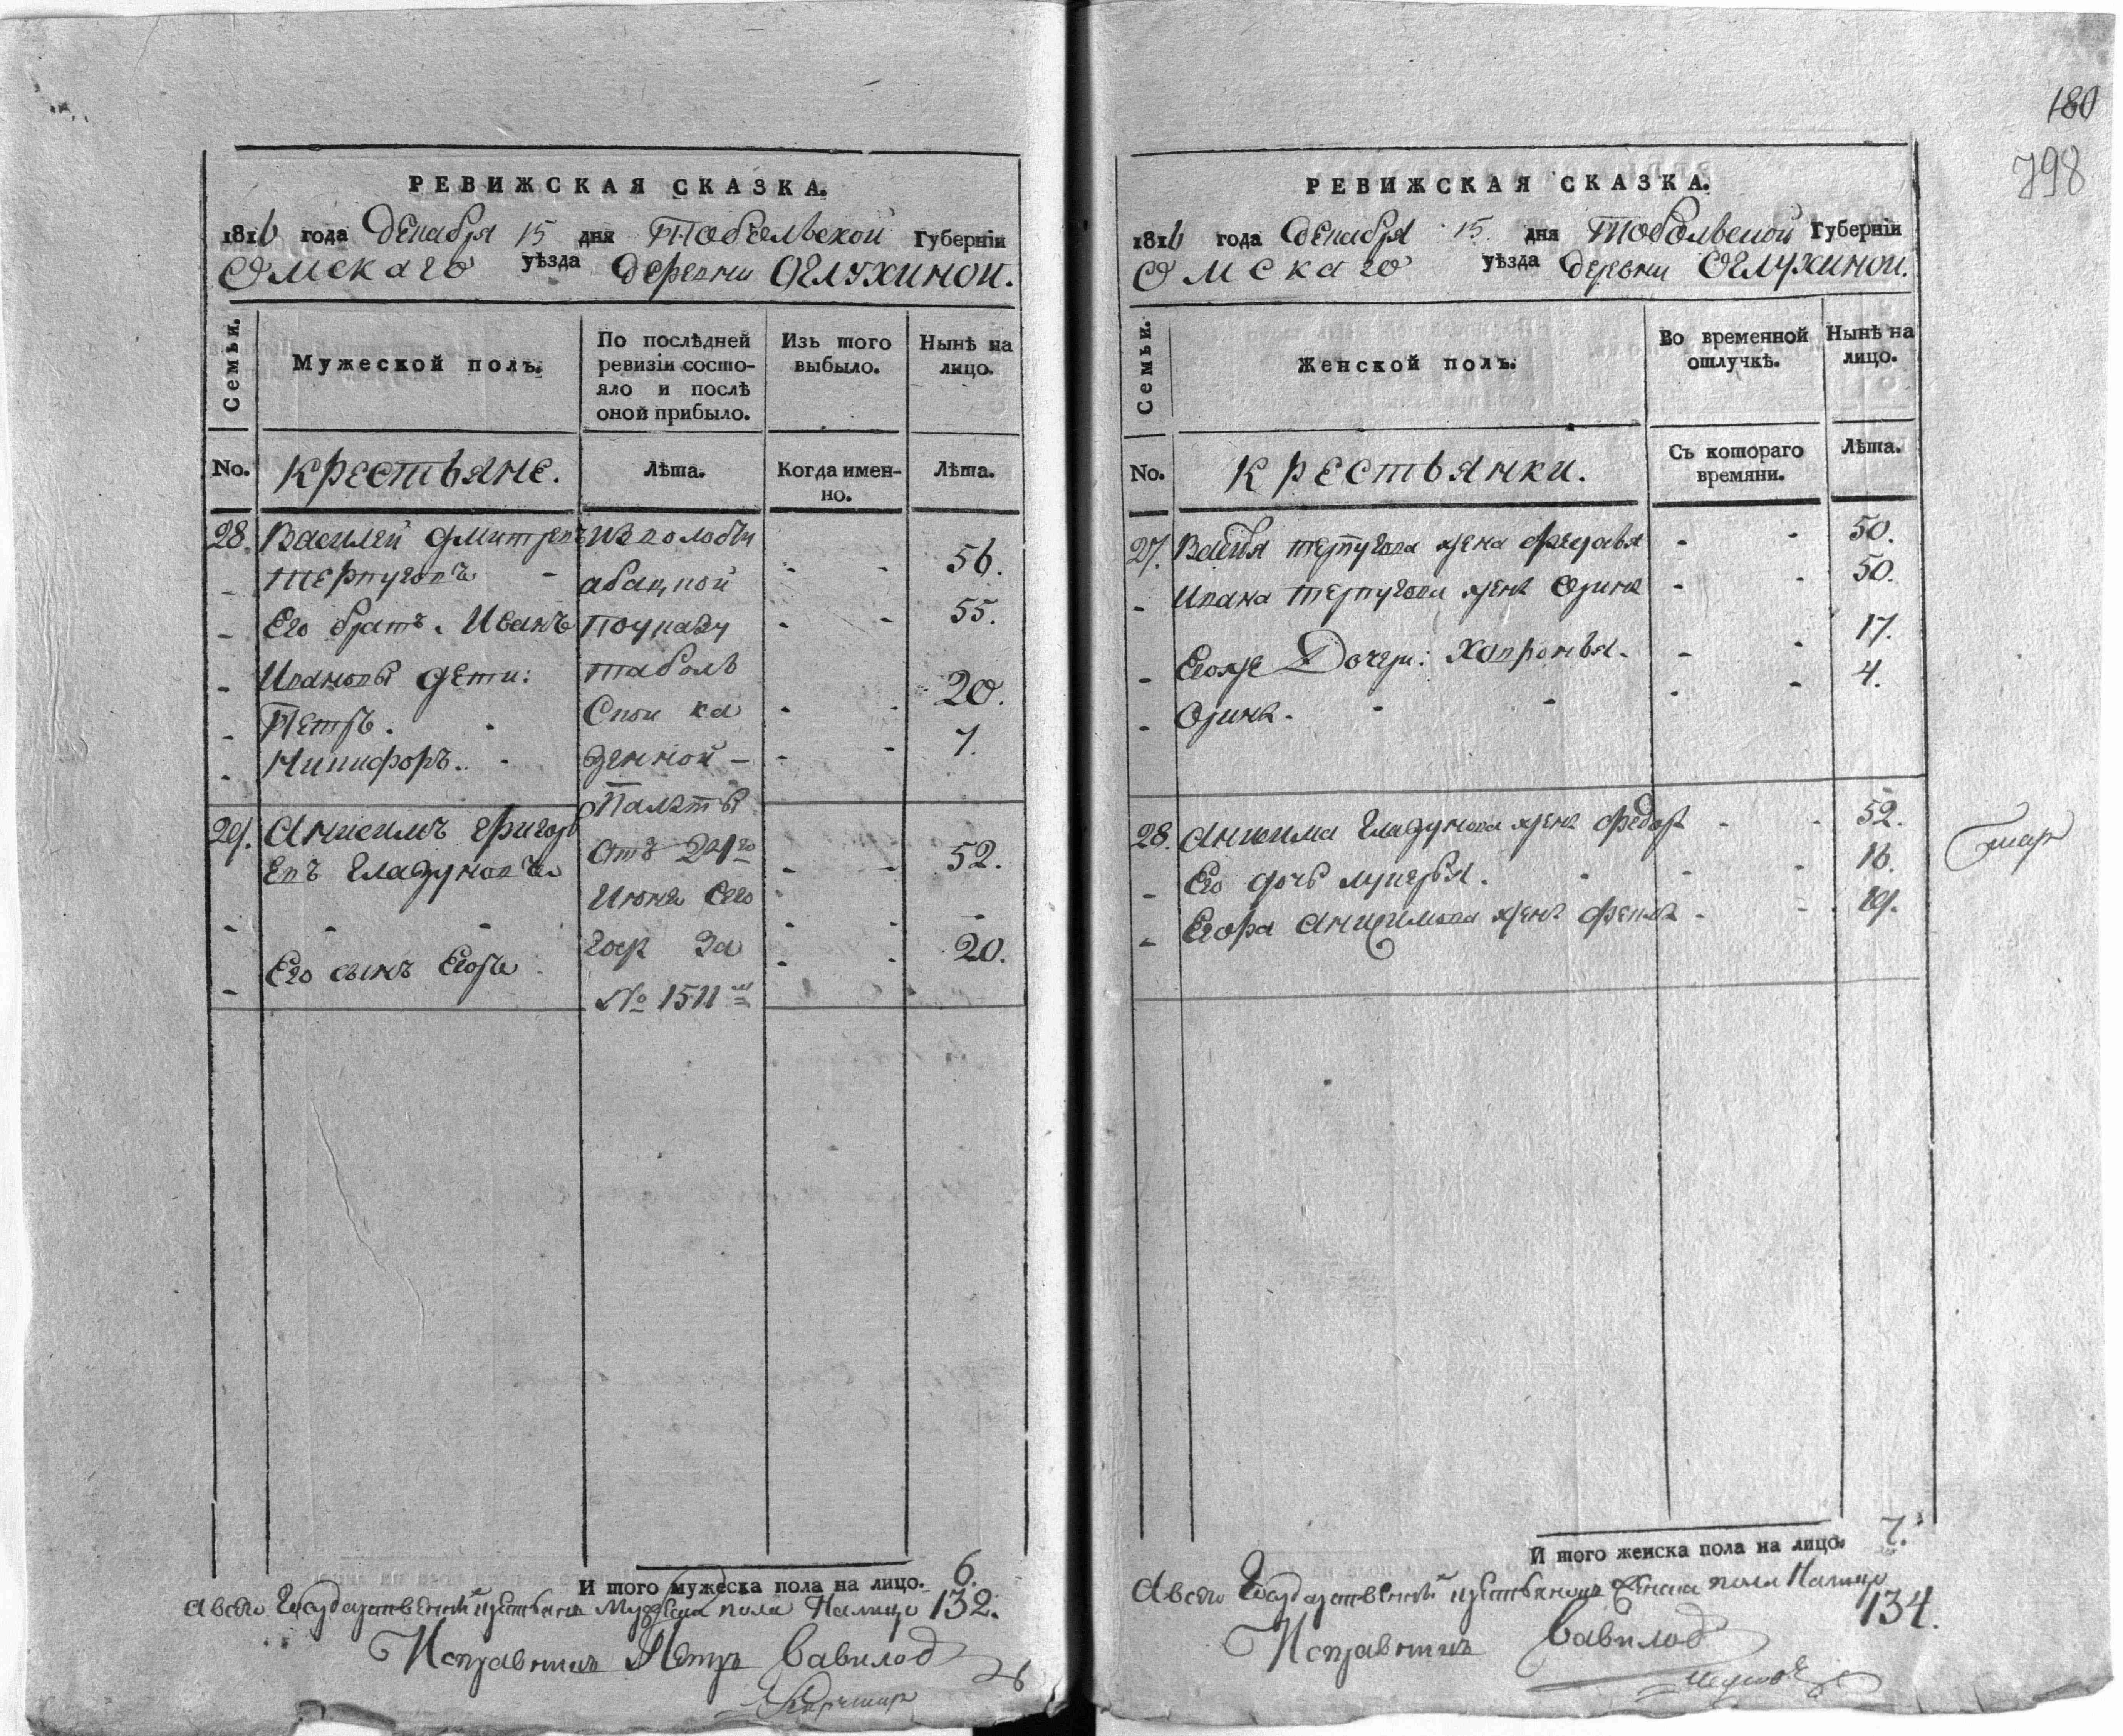 180
798
РЕВИЖСКАЯ СКАЗКА.
1816 года декабря 15 дня Тобольской Губерніи
Омскаго уѣзда деревни Оглухиной.
Семьи.
Мужеской полъ.
По послѣдней ревизіи состо-
яло и послѣ
оной прибыло.
Изъ того
выбыло.
Нынѣ на
лицо.
No.
Крестьяне.
Лѣта.
Когда имен-
но.
Лѣта.
28. Василей Дмитревъ
Терпуговъ 56.
Его братъ. Иванъ 55.
Ивановы дети:
Петръ. 20.
Никифоръ. 7.
29. Анисимъ Григорь
евъ Глазуновъ 52.
Его сынъ Егоръ 20.
Из волости
абацкой
По указу
таболь
Ской ка
зенной
Палаты
Отъ 24го
Июня Сего
года За
No 1511м
И того мужеска пола на лицо. 6.
А всего Государственныхъ крестьянъ Мужеска пола Налицо 132.
Исправникъ Петръ Вавилов
РЕВИЖСКАЯ СКАЗКА.
1816 года декабря 15 дня Тобольской Губерніи
Омскаго уѣзда деревни Оглухиной.
Семьи.
Женской полъ.
Во временной
отлучкѣ.
Нынѣ на
лицо.
No.
Крестьянки.
Съ котораго
времяни.
Лѣта.
27. Василья Терпугова жена Федосья 50.
Ивана Терпугова жена Орина 50.
Егоже Дочери: Хавронья 17.
Орина. 4.
28. Анисима Глазунова жена Федора 52.
Его дочь Лукерья. 16.
Егора Анисимова жена Фекла 19.
И того женска пола на лицо. 7.
А всего Государственныхъ крестьянокъ Женска пола Налицо
134.
Исправникъ Вавилов